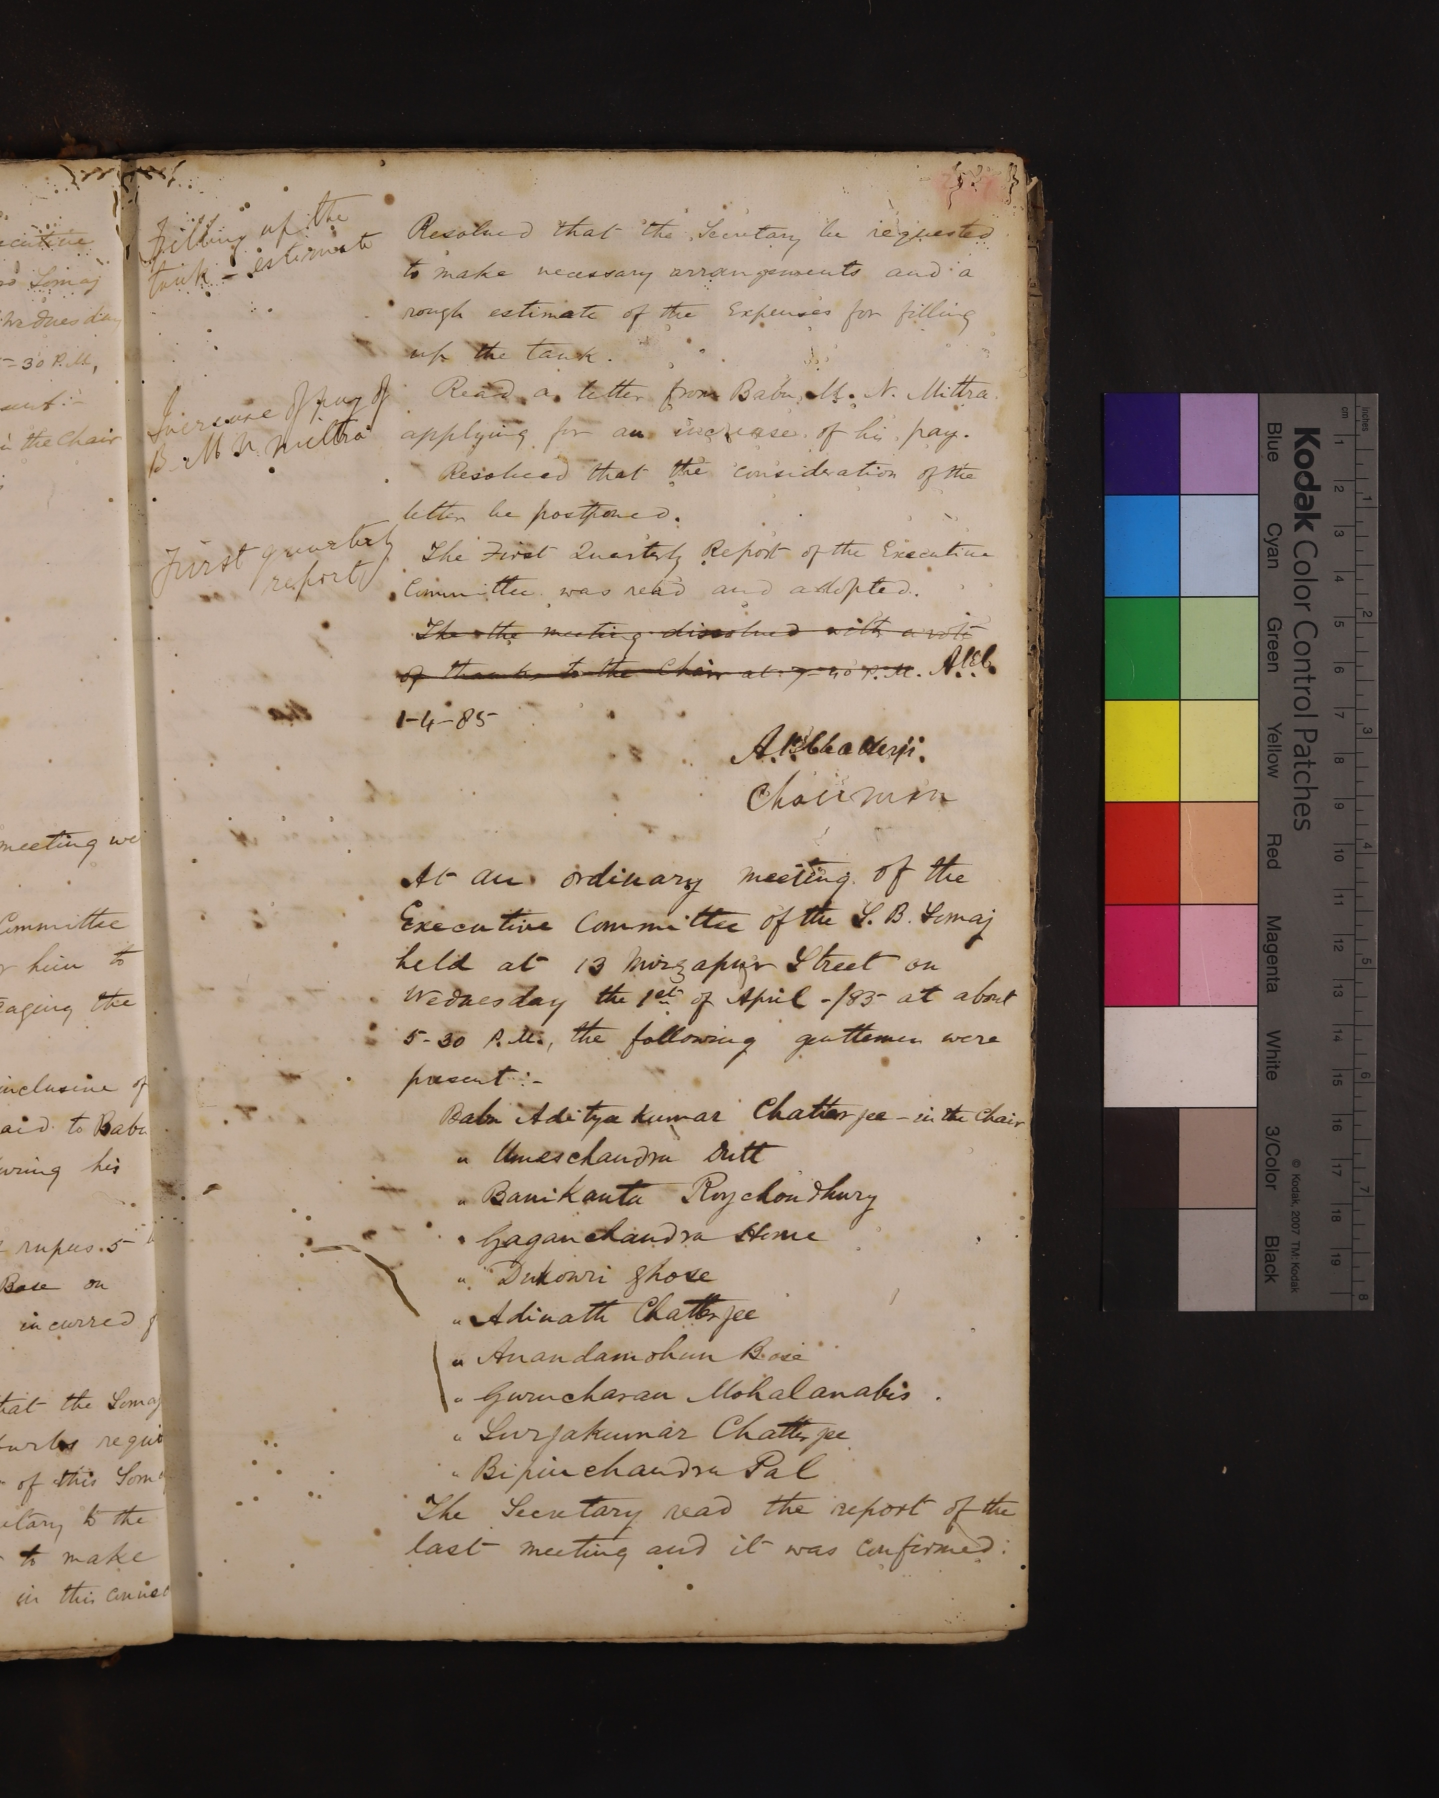 ecutive
Somaj
Wednesday
5-30 P.M,
sent:-
in the Chair
meeting we
Committee
r him to
gaging the
inclusive of
aid to Babu
uring his
rupees 5
Bose on
incurred
that the Somaj
of this Som
etary to the
to make
in this connect
Filling up the
tank - estimate
Resolved that the Secretary be requested
to make necessary arrangements and a
rough estimate of the Expenses for filling
up the tank.
Increase of pay of
B. M N Mittra
Read a letter from Babu M. N. Mittra
applying for an increase of his pay.
Resolved that the consideration of the
letter be postponed.
First quarterly
report
The First Quarterly Report of the Executive
Committee was read and adopted.
The the meeting dissolved with a vote
of thanks to the Chair at 7-40 P.M. A.K.C.
1-4-85
A.K. Chatterji.
Chairman
At an ordinary meeting of the
Executive Committee of the S. B. Somaj
held at 13 Mirzapur Street on
Wednesday the 1st of April -/85 at about
5-30 P.M., the following gentlemen were
present:-
Babu Aditya kumar Chatterjee - in the Chair
" Umeschandra Dutt
" Banikanta Roychoudhury
" Gaganchandra Home
" Dukowri Ghose
" Adinath Chatterjee
" Anandamohun Bose
" Gurucharan Mohalanabis.
" Surjakumar Chatterjee
" Bipinchandra Pal
The Secretary read the report of the
last meeting and it was confirmed.
Kodak Color Control Patches
Blue
Cyan
Green
Yellow
Red
Magenta
White
3/Color
Black
© Kodak, 2007 TM: Kodak
inches
cm
1
2
3
4
5
6
7
8
9
10
11
12
13
14
15
16
17
18
19
1
2
3
4
5
6
7
8